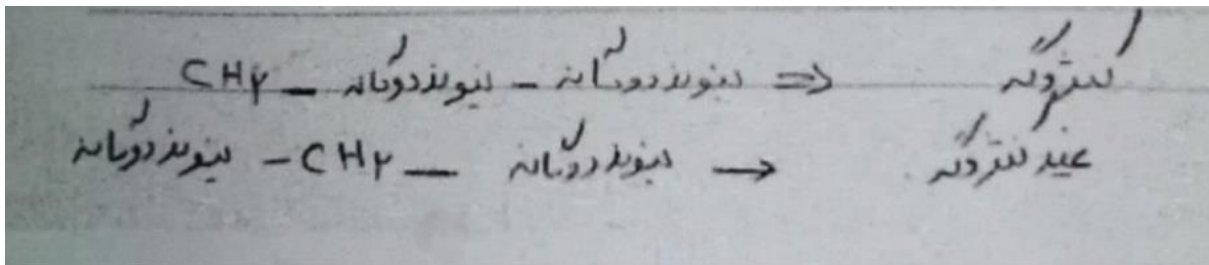 کنژوگه ⇐ پیوند دوگانه - پیوند دوگانه - CH۲
غیر کنژوگه → پیوند دوگانه - CH۲ - پیوند دوگانه